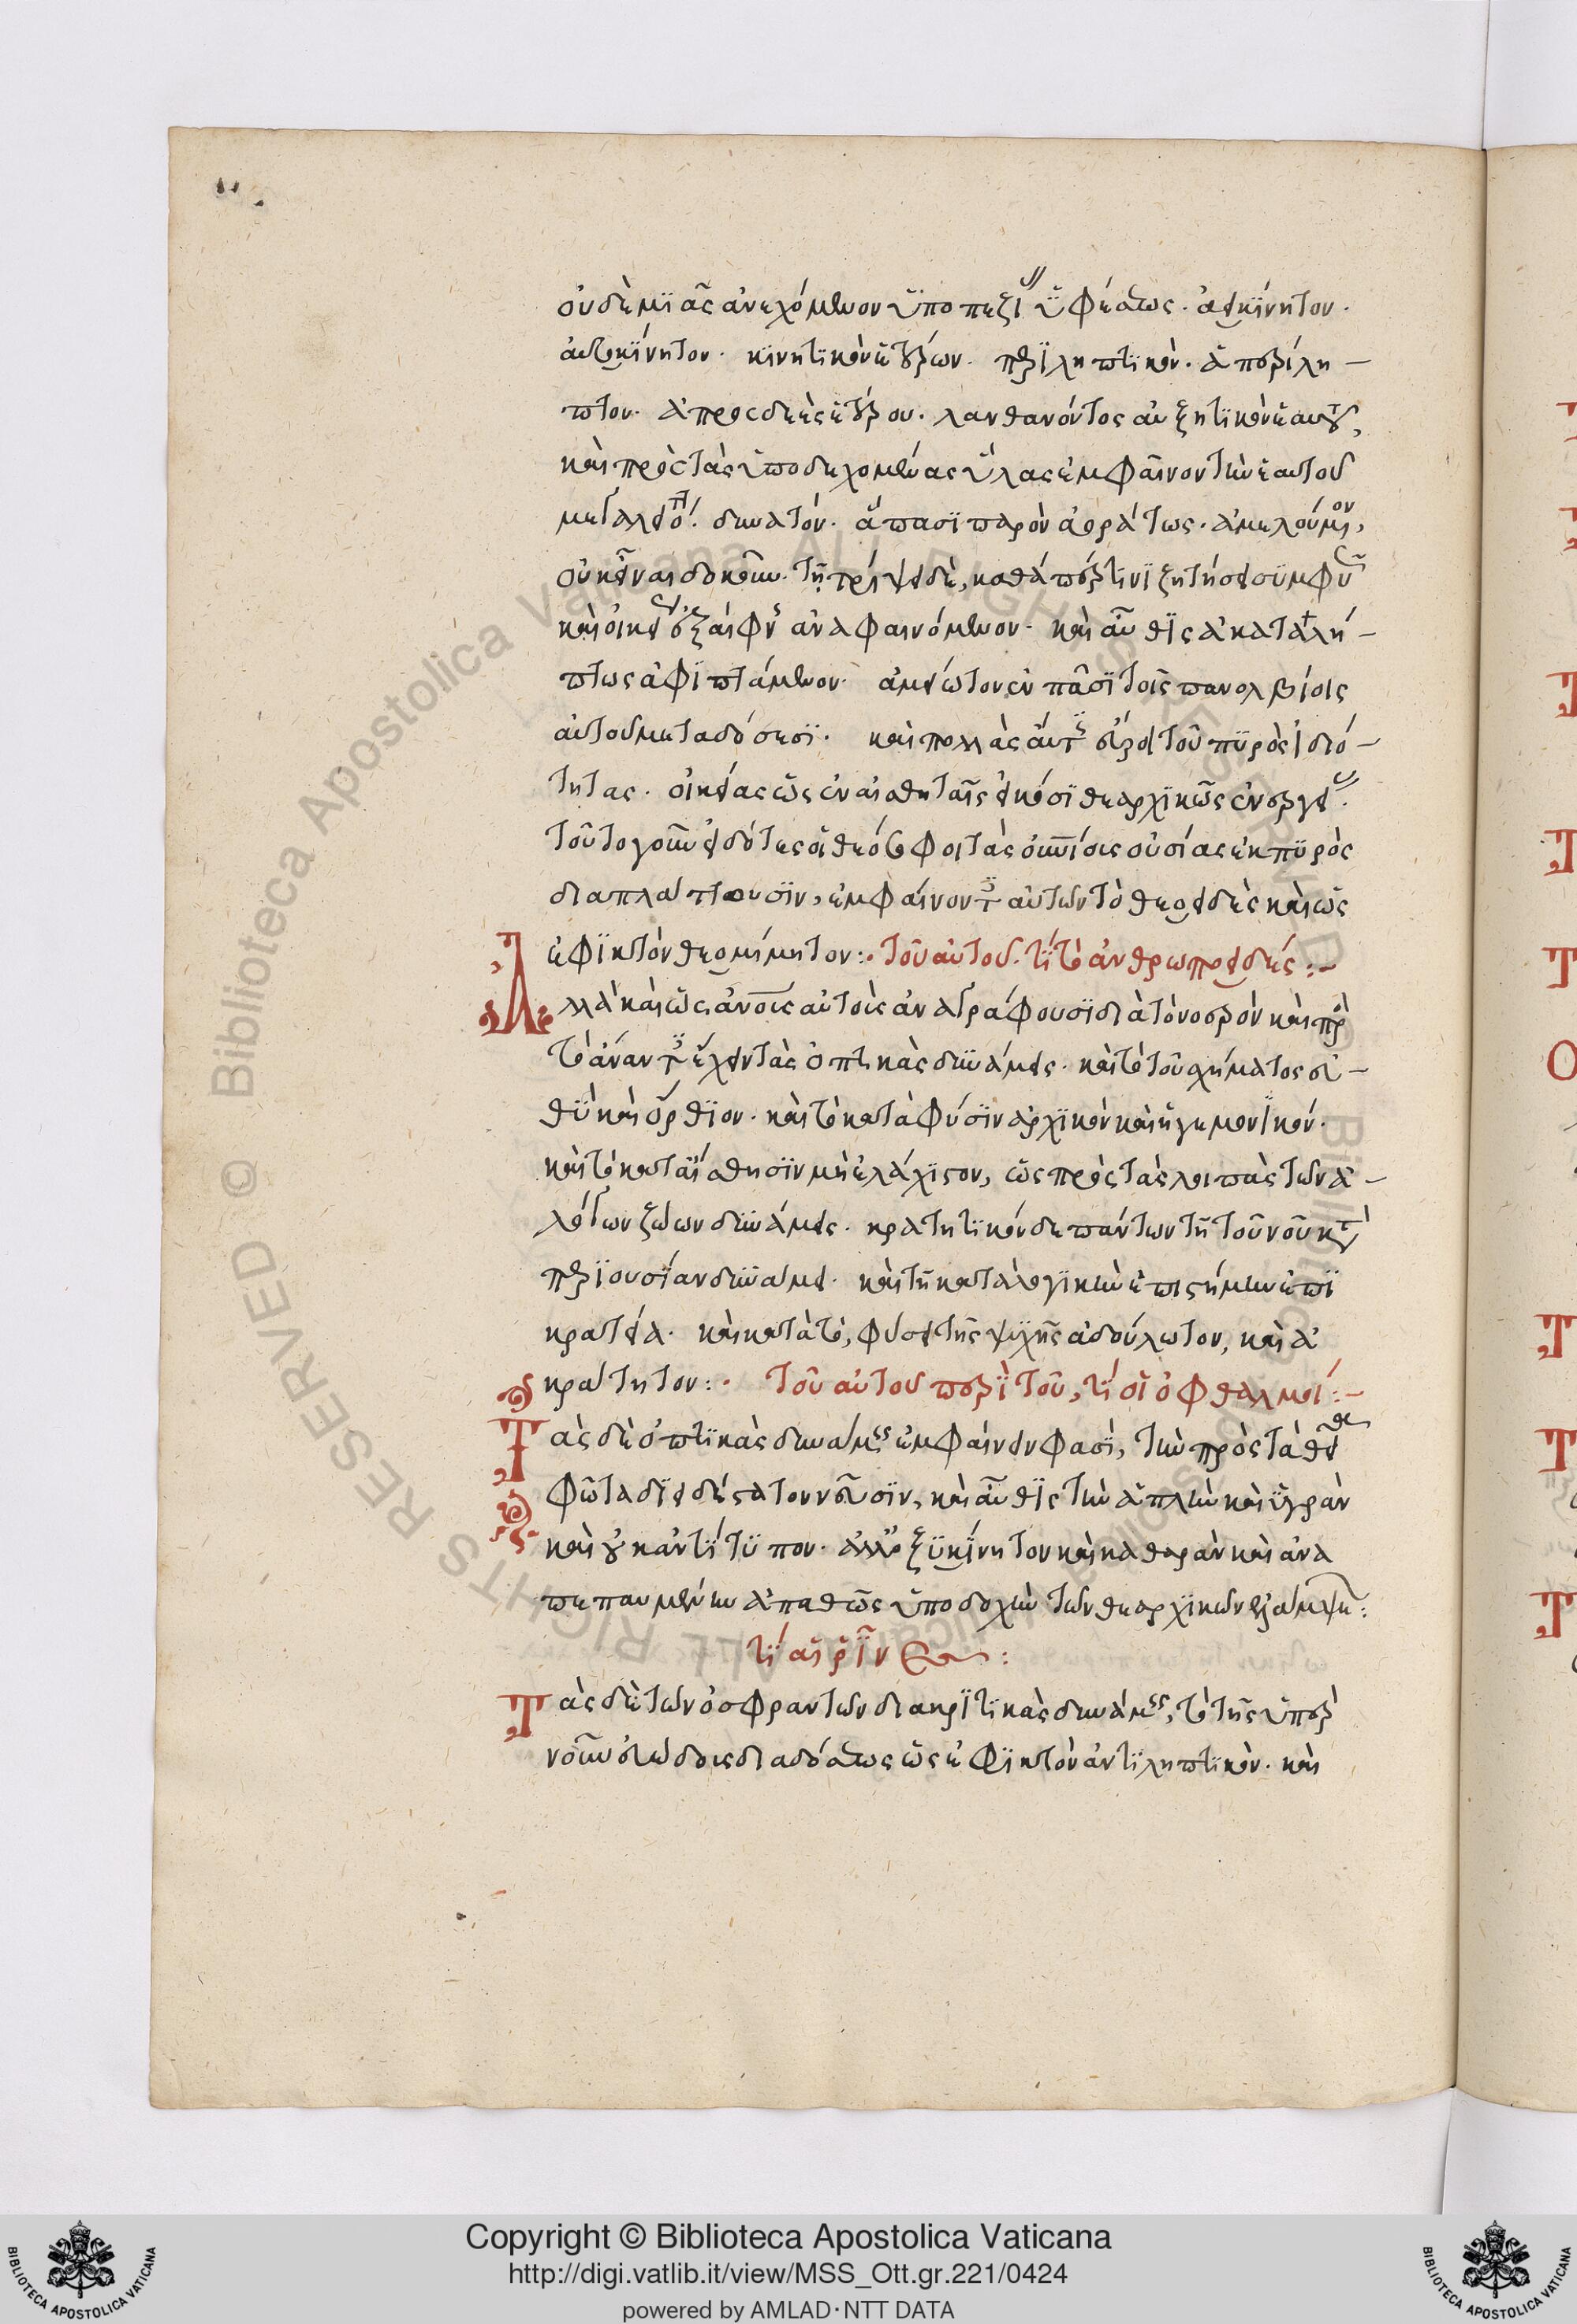 οὐδεμιᾶς ἀνεχόμενον ὑποπεζίας ὑφέσεως. ἀεικίνητον.
αὐτοκίνητον. κινητικὸν ἑτέρων. περιληπτικόν. ἀπερίλη-
πτον. ἀπροσδεὲς ἑτέρου. λανθανόντως αὐξητικὸν ἑαυτοῦ,
καὶ πρὸς τὰς ὑποδεχομένας ὕλας ἐμφαῖνον τὴν ἑαυτοῦ
μεγαλειότητα. δυνατόν. ἅπασι παρὸν ἀοράτως. ἀμελούμενον,
οὐκ εἶναι δοκοῦν. τῇ τρίψει δὲ, καθάπερ τινὶ ζητήσει συμφυῶς
καὶ οἰκείως ἐξαίφνης ἀναφαινόμενον. καὶ αὖθις ἀκαταλή-
πτως ἀφιπτάμενον. ἀμείωτον ἐν πᾶσι τοῖς πανολβίοις
αὐτοῦ μεταδόσεσι. καὶ πολλὰς ἄν τις εὕροι τοῦ πυρὸς ἰδιό-
τητας. οἰκείας ὡς ἐν αἰσθηταῖς εἰκόσι θεαρχικῶς ἐνεργείας.
τοῦτο γοῦν εἰδότες οἱ θεόσοφοι τὰς οὐρανίους οὐσίας ἐκ πυρὸς
διαπλάττουσιν, ἐμφαίνοντες αὐτῶν τὸ θεοειδὲς καὶ ὡς
ἐφικτὸν θεομίμητον:. τοῦ αὐτοῦ. τί τὸ ἀνθρωποειδές:-
Ἀλλὰ καὶ ὡς ἀνθρώποις αὐτοὺς ἀναγράφουσι διὰ τὸ νοερὸν καὶ πρὸς
τὸ ἄναντες ἔχειν τὰς ὀπτικὰς δυνάμεις. καὶ τὸ τοῦ σχήματος εὐ-
θὺ καὶ ὄρθιον. καὶ τὸ κατὰ φύσιν ἀρχικὸν καὶ ἡγεμονικόν.
καὶ τὸ κατ' αἴσθησιν μὲν ἐλάχιστον, ὡς πρὸς τὰς λοιπὰς τῶν ἀ-
λόγων ζώων δυνάμεις. κρατητικὸν δὲ πάντων τῇ τοῦ νοῦ κατὰ
περιουσίαν δυνάμει. καὶ τῇ κατὰ λογικὴν ἐπιστήμην ἐπι
κρατείᾳ. καὶ κατὰ τὸ, φύσει τῆς ψυχῆς ἀδούλωτον, καὶ ἀ
κράτητον:. τοῦ αὐτοῦ περὶ τοῦ, τί οἱ ὀφθαλμοί:-
Τὰς δὲ ὀπτικὰς δυνάμεις ἐμφαίνειν φασὶ, τὴν πρὸς τὰ θεῖα
φῶτα διειδεστάτον νεῦσιν, καὶ αὖθις τὴν ἁπλὴν καὶ ὑγρὰν
καὶ οὐκ ἀντίτυπον. ἀλλ' ὀξυκίνητον καὶ καθαρὰν καὶ ἀνα
πεπαυμένην ἀπαθῶς ὑποδοχὴν τῶν θεαρχικῶν ἐλλάμψεων:
τί αἱ ῥῖνες:
Τὰς δὲ τῶν ὀσφραντῶν διακριτικὰς δυνάμεις, τὸ τῆς ὑπὲρ
νοῦν εὐώδους διαδόσεως ὡς ἐφικτὸν ἀντιληπτικόν. καὶ
Copyright © Biblioteca Apostolica Vaticana
http://digi.vatlib.it/view/MSS_Ott.gr.221/0424
powered by AMLAD·NTT DATA